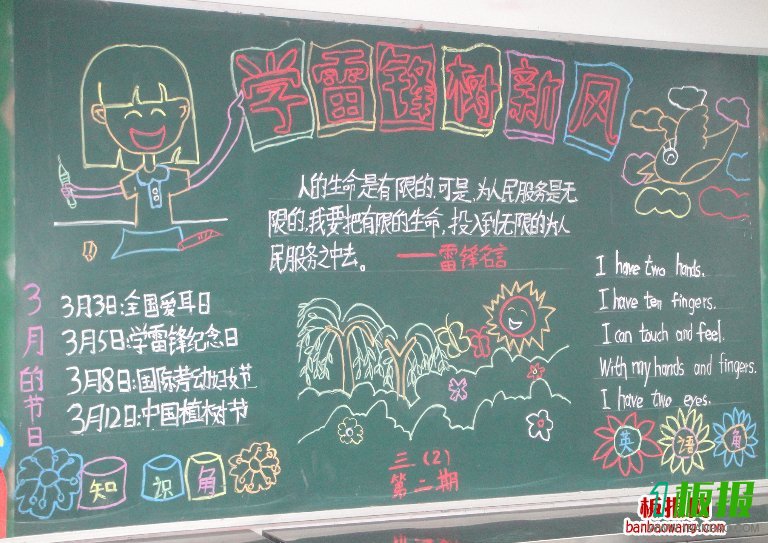 学雷锋树新风
人的生命是有限的,可是,为人民服务是无
限的,我要把有限的生命,投入到无限的为人
民服务之中去。——雷锋名言
3月的节日
3月3日:全国爱耳日
3月5日:学雷锋纪念日
3月8日:国际劳动妇女节
3月12日:中国植树节
知识角
三(2)
第二期
I have two hands.
I have ten fingers.
I can touch and feel.
With my hands and fingers.
I have two eyes.
英语角
板报网
banbaowang.com